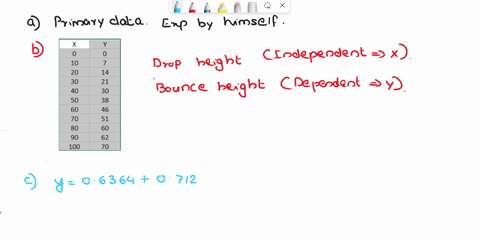 a) Primary data. Exp by himself.
b)
X Y
0 0
10 7
20 14
30 21
40 30
50 38
60 46
70 51
80 60
90 62
100 70
Drop height (Independent => X).
Bounce height (Dependent => Y).
c) y = 0.6364 + 0.712